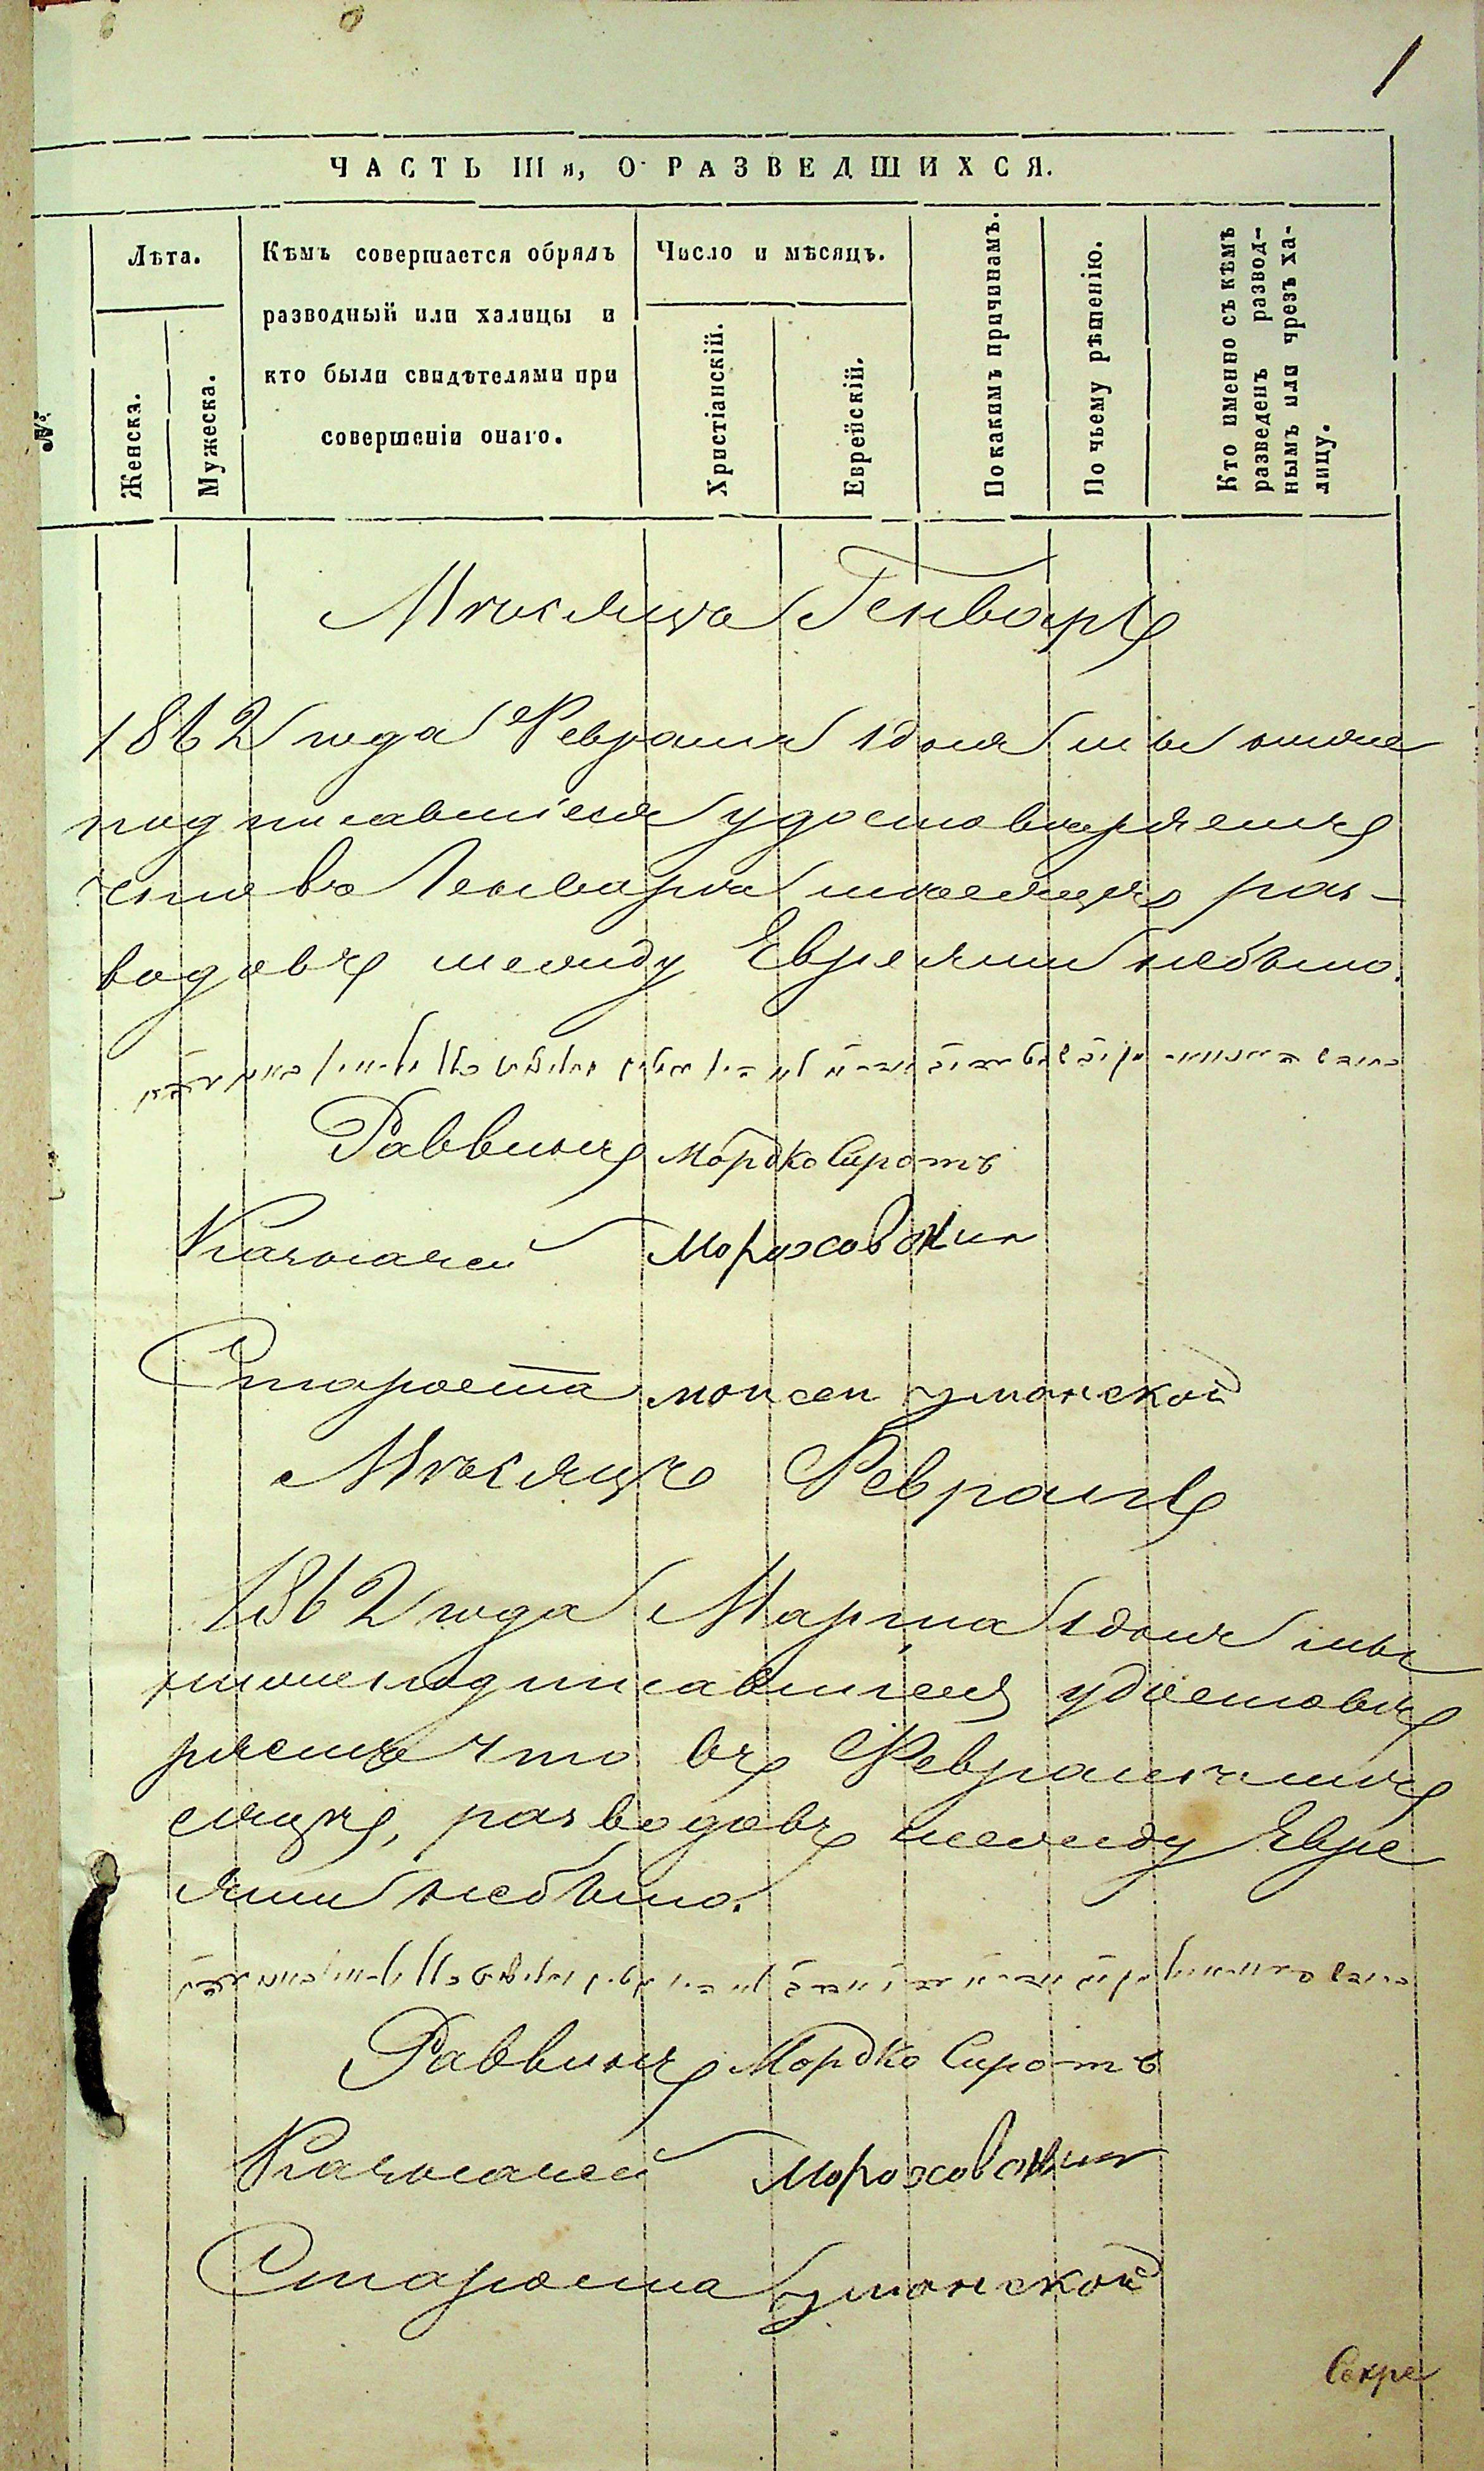 1
ЧАСТЬ III я, О РАЗВЕДШИХСЯ.
№
Лѣта.
Женска.
Мужеска.
Кѣмъ совершается обрядъ
разводный или халицы и
кто были свидѣтелями при
совершеніи онаго.
Число и мѣсяцъ.
Христіанскій.
Еврейскій.
По какимъ причинамъ.
По чьему рѣшенію.
Кто именно съ кѣмъ
разведенъ развод-
нымъ или чрезъ ха-
лицу.
Мѣсяца Генваря
1862 года Февраля 1 дня мы ниже
подписавшіеся удостовѣряемъ
что въ Генварѣ мѣсяцѣ раз-
водовъ между Евреями небыло.
Раввинъ Мордко Сиротъ
Казначей Мороховскии
Староста моисеи уманской
Мѣсяцъ Февраль
1862 года Марта 1 дня мы
нижеподписавшіеся удостовѣ
ряемъ что въ Февралѣ мѣ
сяцѣ, разводовъ между Евре
ями небыло.
Раввинъ Мордко Сиротъ
Казначей Мороховскии
Староста уманской
Секре